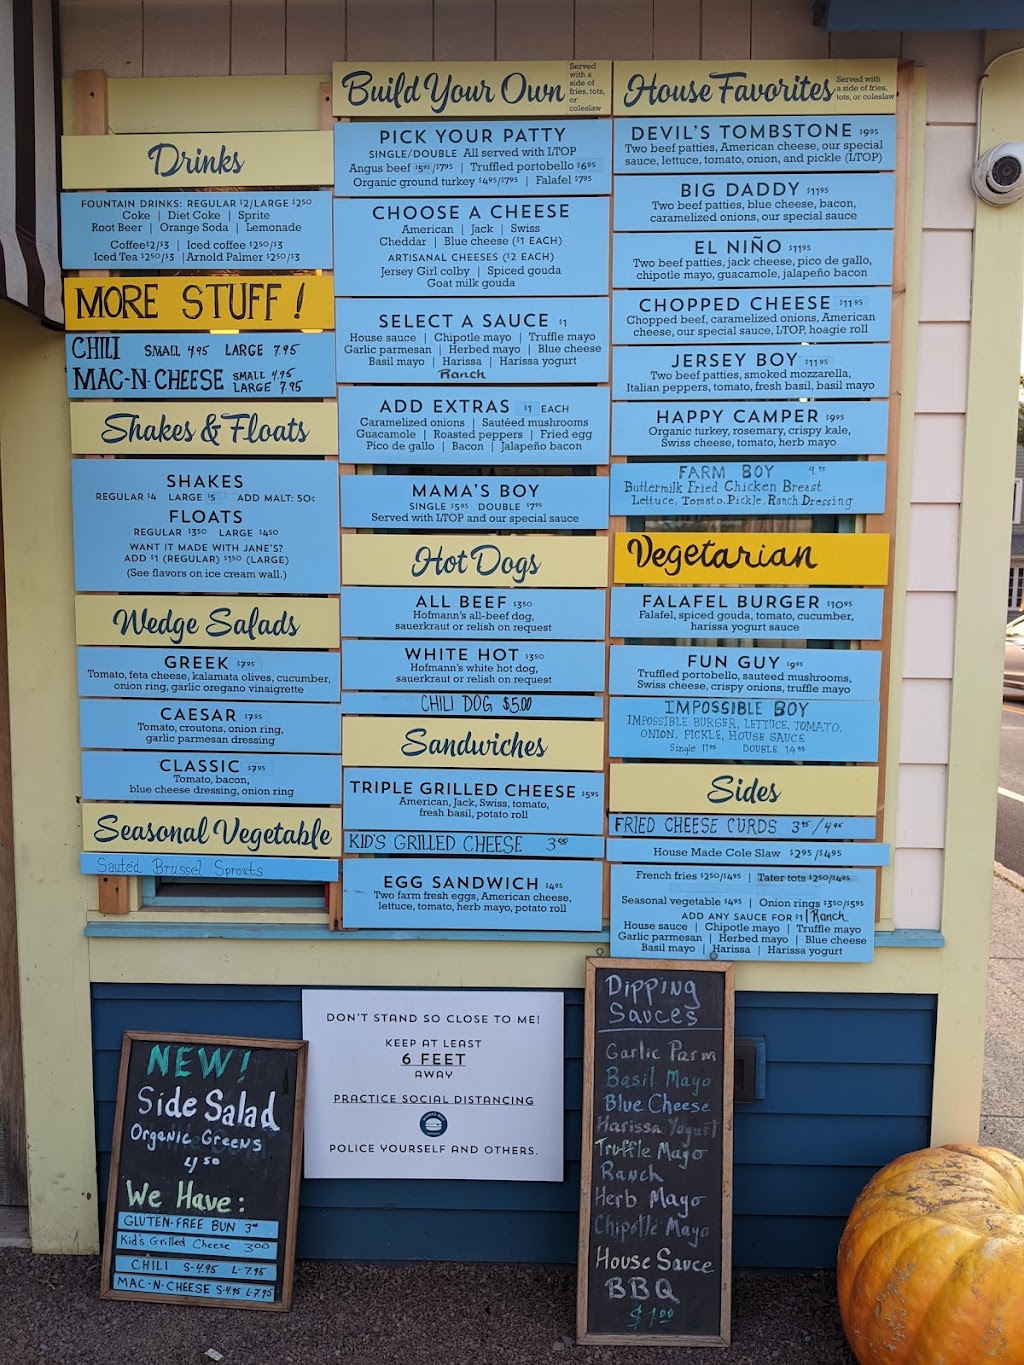 Drinks
FOUNTAIN DRINKS: REGULAR $2/LARGE $2.50
Coke | Diet Coke | Sprite
Root Beer | Orange Soda | Lemonade
Coffee $2/$3 | Iced coffee $2.50/$3
Iced Tea $2.50/$3 | Arnold Palmer $2.50/$3
MORE STUFF!
CHILI SMALL 4.95 LARGE 7.95
MAC-N-CHEESE SMALL 4.95
LARGE 7.95
Shakes & Floats
SHAKES
REGULAR $4 LARGE $5 ADD MALT: 50¢
FLOATS
REGULAR $3.50 LARGE $4.50
WANT IT MADE WITH JANE'S?
ADD $1 (REGULAR) $1.50 (LARGE)
(See flavors on ice cream wall.)
Wedge Salads
GREEK $7.95
Tomato, feta cheese, kalamata olives, cucumber,
onion ring, garlic oregano vinaigrette
CAESAR $7.95
Tomato, croutons, onion ring,
garlic parmesan dressing
CLASSIC $7.95
Tomato, bacon,
blue cheese dressing, onion ring
Seasonal Vegetable
Sautéd Brussel Sprouts
Build Your Own
Served
with a
side of
fries, tots,
or
coleslaw
PICK YOUR PATTY
SINGLE/DOUBLE All served with LTOP
Angus beef $5.95/$7.95 | Truffled portobello $6.95
Organic ground turkey $4.95/$7.95 | Falafel $7.95
CHOOSE A CHEESE
American | Jack | Swiss
Cheddar | Blue cheese ($1 EACH)
ARTISANAL CHEESES ($2 EACH)
Jersey Girl colby | Spiced gouda
Goat milk gouda
SELECT A SAUCE $1
House sauce | Chipotle mayo | Truffle mayo
Garlic parmesan | Herbed mayo | Blue cheese
Basil mayo | Harissa | Harissa yogurt
Ranch
ADD EXTRAS $1 EACH
Caramelized onions | Sautéed mushrooms
Guacamole | Roasted peppers | Fried egg
Pico de gallo | Bacon | Jalapeño bacon
MAMA'S BOY
SINGLE $5.95 DOUBLE $7.95
Served with LTOP and our special sauce
Hot Dogs
ALL BEEF $3.50
Hofmann's all-beef dog,
sauerkraut or relish on request
WHITE HOT $3.50
Hofmann's white hot dog,
sauerkraut or relish on request
CHILI DOG $5.00
Sandwiches
TRIPLE GRILLED CHEESE $5.95
American, Jack, Swiss, tomato,
fresh basil, potato roll
KID'S GRILLED CHEESE 3.00
EGG SANDWICH $4.95
Two farm fresh eggs, American cheese,
lettuce, tomato, herb mayo, potato roll
House Favorites
Served with
a side of fries,
tots, or coleslaw
DEVIL'S TOMBSTONE $9.95
Two beef patties, American cheese, our special
sauce, lettuce, tomato, onion, and pickle (LTOP)
BIG DADDY $11.95
Two beef patties, blue cheese, bacon,
caramelized onions, our special sauce
EL NIÑO $11.95
Two beef patties, jack cheese, pico de gallo,
chipotle mayo, guacamole, jalapeño bacon
CHOPPED CHEESE $11.95
Chopped beef, caramelized onions, American
cheese, our special sauce, LTOP, hoagie roll
JERSEY BOY $11.95
Two beef patties, smoked mozzarella,
Italian peppers, tomato, fresh basil, basil mayo
HAPPY CAMPER $9.95
Organic turkey, rosemary, crispy kale,
Swiss cheese, tomato, herb mayo
FARM BOY 9.95
Buttermilk Fried Chicken Breast
Lettuce, Tomato, Pickle, Ranch Dressing
Vegetarian
FALAFEL BURGER $10.95
Falafel, spiced gouda, tomato, cucumber,
harissa yogurt sauce
FUN GUY $9.95
Truffled portobello, sauteed mushrooms,
Swiss cheese, crispy onions, truffle mayo
IMPOSSIBLE BOY
IMPOSSIBLE BURGER, LETTUCE, TOMATO,
ONION, PICKLE, HOUSE SAUCE
Single 11.95 DOUBLE 14.95
Sides
FRIED CHEESE CURDS 3.95/4.95
House Made Cole Slaw $2.95/$4.95
French fries $2.50/$4.95 | Tater tots $2.50/$4.95
Seasonal vegetable $4.95 | Onion rings $3.50/$5.95
ADD ANY SAUCE FOR $1 / Ranch
House sauce | Chipotle mayo | Truffle mayo
Garlic parmesan | Herbed mayo | Blue cheese
Basil mayo | Harissa | Harissa yogurt
NEW!
Side Salad
Organic Greens
4.50
We Have:
GLUTEN-FREE BUN 3.00
Kid's Grilled Cheese 3.00
CHILI S-4.95 L-7.95
MAC-N-CHEESE S-4.95 L-7.95
DON'T STAND SO CLOSE TO ME!
KEEP AT LEAST
6 FEET
AWAY
PRACTICE SOCIAL DISTANCING
POLICE YOURSELF AND OTHERS.
Dipping
Sauces
Garlic Parm
Basil Mayo
Blue Cheese
Harissa Yogurt
Truffle Mayo
Ranch
Herb Mayo
Chipotle Mayo
House Sauce
BBQ
$1.00